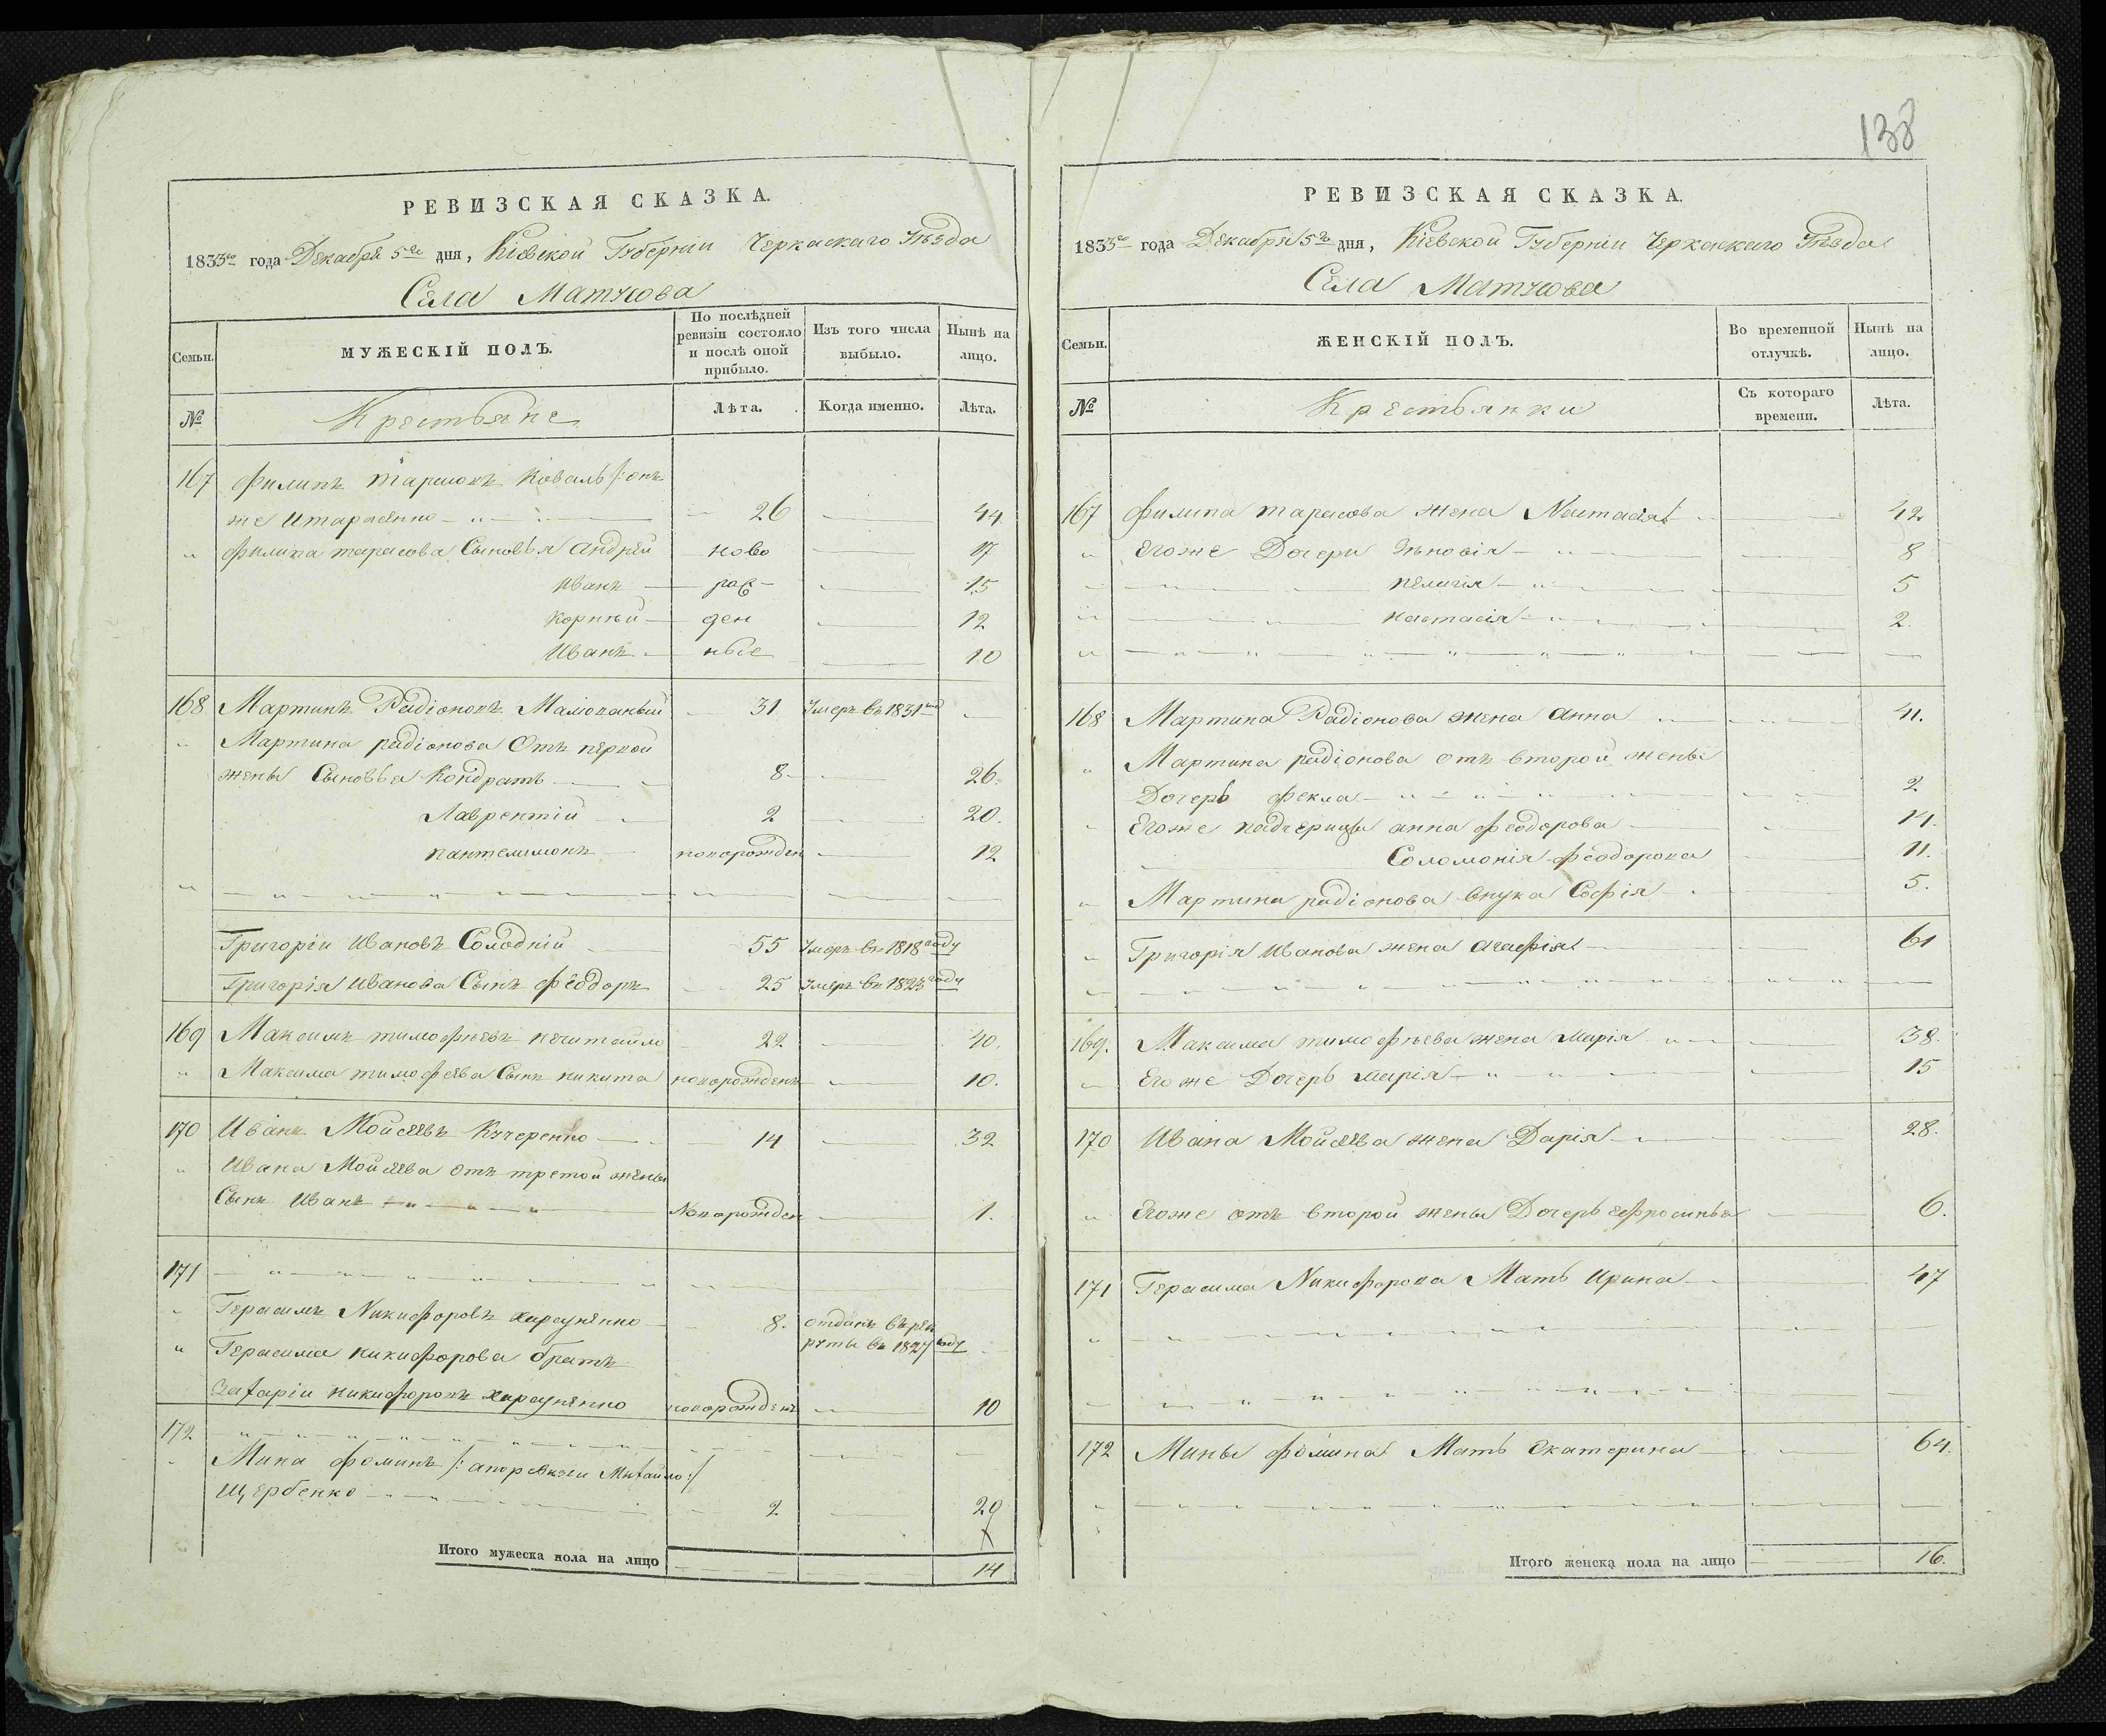 138
РЕВИЗСКАЯ СКАЗКА.
1833го года Декабря 5го дня, Кіевской Губерніи Черкаскаго Уѣзда
Села Матусова
Семьи.
МУЖЕСКІЙ ПОЛЪ.
По послѣдней ревизіи состояло и послѣ оной прибыло.
Изъ того числа выбыло.
Нынѣ на лицо.
№
Крестьяне
Лѣта.
Когда именно.
Лѣта.
167 Филипъ Тарасовъ Коваль /: онъ
же Итарасенко 26 44
Филипа тарасова Сыновья Андрей ново 17
Иванъ рож 15
Корнѣй ден 12
Иванъ ные 10
168 Мартинъ Радіоновъ 31 Умеръ въ 1831
Мартина радіонова Отъ первой
жены Сыновья Кондратъ 8 26.
Лаврентій 2 20.
пантелимонъ новорожден 12
Григорій Ивановъ Солодкій 55 Умеръ въ 1818 году
Григорія Иванова Сынъ Феодоръ 25 Умеръ въ 1823 году
169 Максимъ тимофѣевъ нечитайло 22 40.
Максима тимофѣева Сынъ никита новорожденъ 10.
170 Иванъ Мойсеевъ Кучеренко 14 32
Ивана Мойсеева отъ третой жены
Сынъ Иванъ Новорожден 1.
171
Герасимъ Никифоровъ 8. отданъ въ рек
руты въ 1827 году
Герасима никифорова братъ
Захаріи никифоровъ новорожденъ 10
172
Мина Фоминъ /: апоревизіи Михайло :/
Щербенко 2 20
Итого мужеска пола на лицо 14
РЕВИЗСКАЯ СКАЗКА.
1833го года Декабря 5го дня, Кіевской Губерніи Черкаскаго Уѣзда
Села Матусова
Семьи.
ЖЕНСКІЙ ПОЛЪ.
Во временной отлучкѣ.
Нынѣ на лицо.
№
Крестьянки
Съ котораго времени.
Лѣта.
167 Филипа тарасова жена Настасія 42
Егоже Дочери Зѣновія 8
пелагія 5
настасія 2.
168 Мартина Радіонова жена Анна 41.
Мартина радіонова отъ второй жены
Дочерь Фекла 2
Егоже падчерицы анна Феодорова 14.
Соломонія Феодорова 11.
Мартина радіонова внука Софія 5.
Григорія Иванова жена Агафія 61
169. Максима тимофѣева жена Марія 38.
Егоже Дочерь марія 15
170 Ивана Мойсеева жена Дарія 28.
Егоже отъ второй жены Дочерь Ефросинья 6.
171 Герасима Никифорова Мать Ирина 47
172 Мины Фомина Мать Екатерина 64.
Итого женска пола на лицо 16.